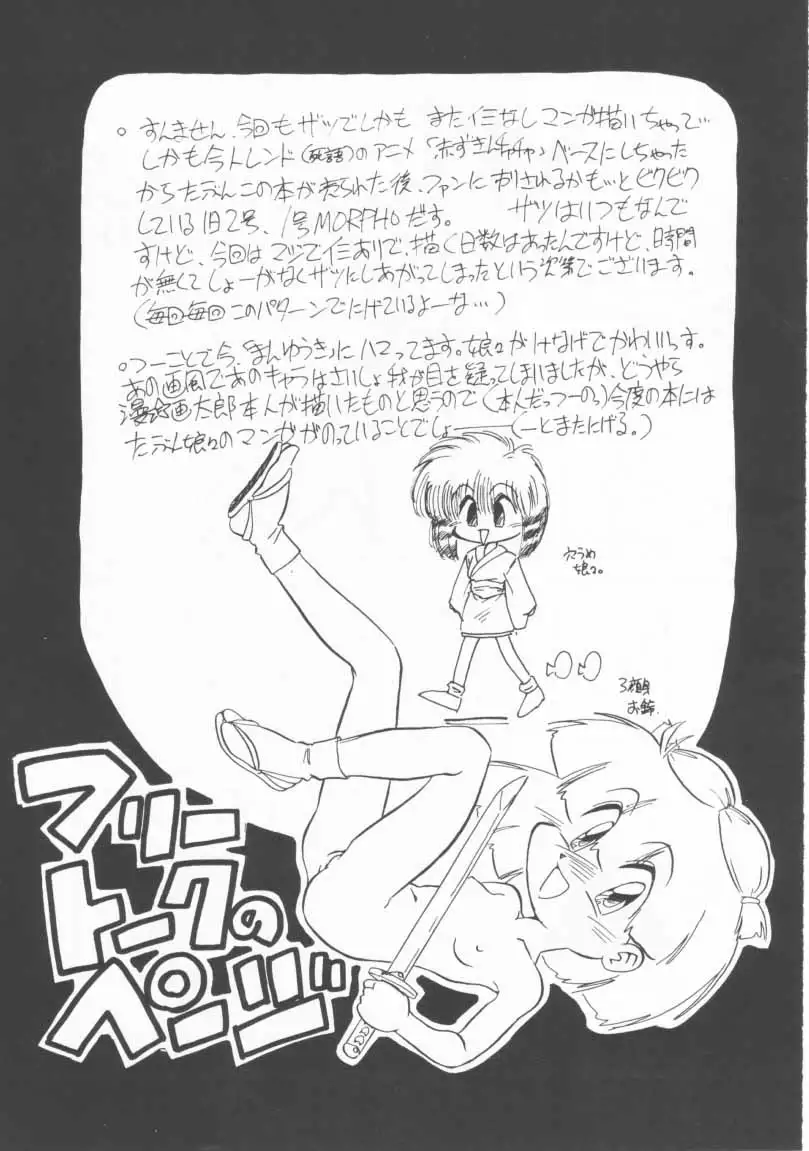 。すんません、今回もザツでしかも またイミなしマンガ描いちゃって…
しかも今トレンド(死語)のアニメ「赤ずきんチャチャ」ベースにしちゃった
からたぶんこの本が売られた後、ファンに刺されるかも…とビクビク
している旧2号、1号MORPHOだす。 ザツはいつもなんで
すけど、今回はマジでイミありで、描く日数はあったんですけど、時間
が無くてしょーがなくザツにしあがってしまったという次第でございます。
(毎回毎回このパターンでにげているよーな…)
。つーことで今、「まんゆうき」にハマってます。娘々がけなげでかわいいっす。
あの画風であのキャラはさいしょ我が目を疑ってしまいましたが、どうやら
漫☆画太郎本人が描いたものと思うので(本人だっつーのっ)今度の本には
たぶん娘々のマンガがのっていることでしょ――(――とまたにげる。)
穴うめ
娘々。
3頭身
お鈴.
フリー
トークの
ページ